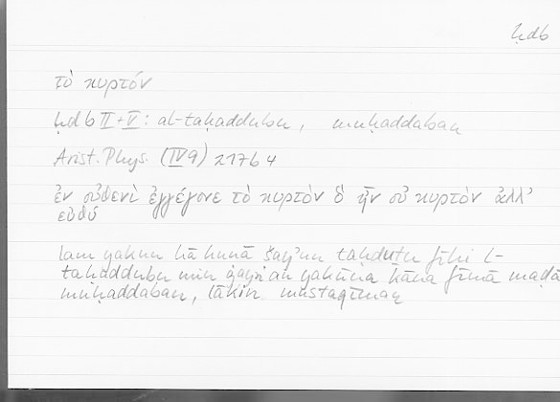 ḥdb
τὸ κυρτόν
ḥdb II+V: al-taḥaddubu, muḥaddaban
Arist. Phys. (IV 9) 217b4
ἐν οὐθενὶ ἐγγέγονε τὸ κυρτὸν ὃ ἦν οὐ κυρτὸν ἀλλ’
εὐθύ
lam yakun hā hunā šayʾun taḥduṯu fīhi l-
taḥaddubu min ġayri an yakūna kāna fīmā maḍā
muḥaddaban, lākin mustaqīman